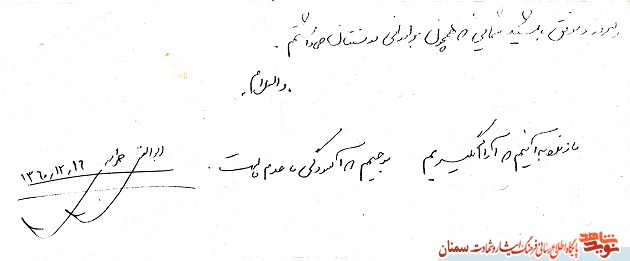 پیروز و موفق باشید شمایی که همچون برادرانی دوستتان میداشتم.
والسلام.
ما زنده به آنیم که آرام نگیریم    موجیم که آسودگی ما عدم ماست.
۱۳۶۰,۱۲,۱۶
نوید شاهد
پایگاه اطلاع رسانی فرهنگ ایثار و شهادت سمنان